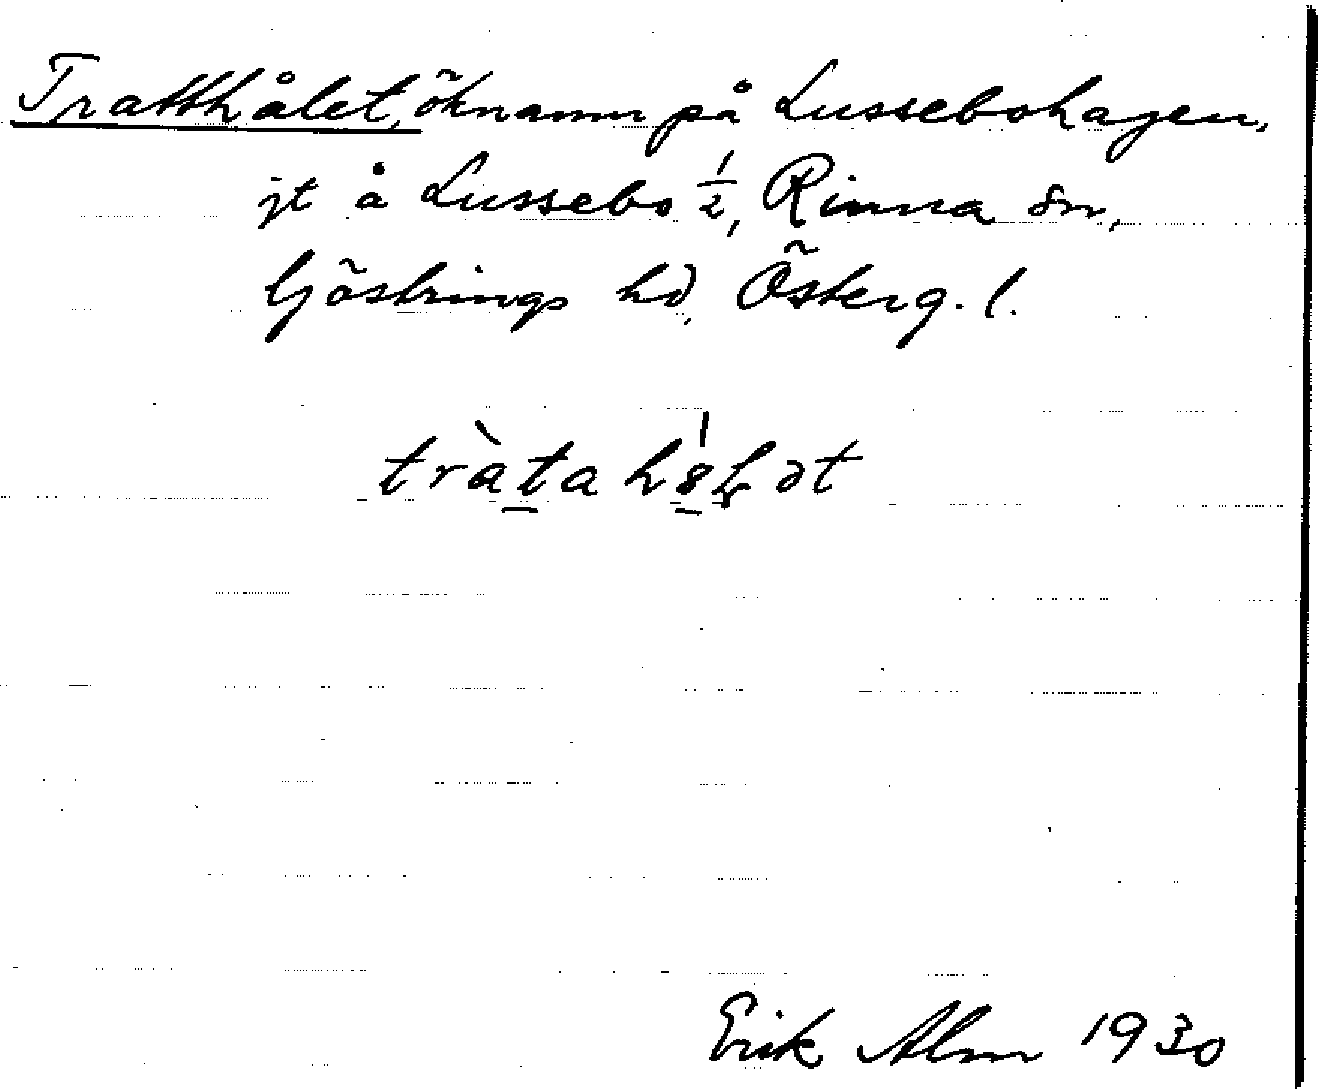 Tratthålet, öknamn på Lussebohagen,
jt å Lussebo 1/2, Rinna sn,
Göstrings hd, Österg. l.
Erik Alm 1930